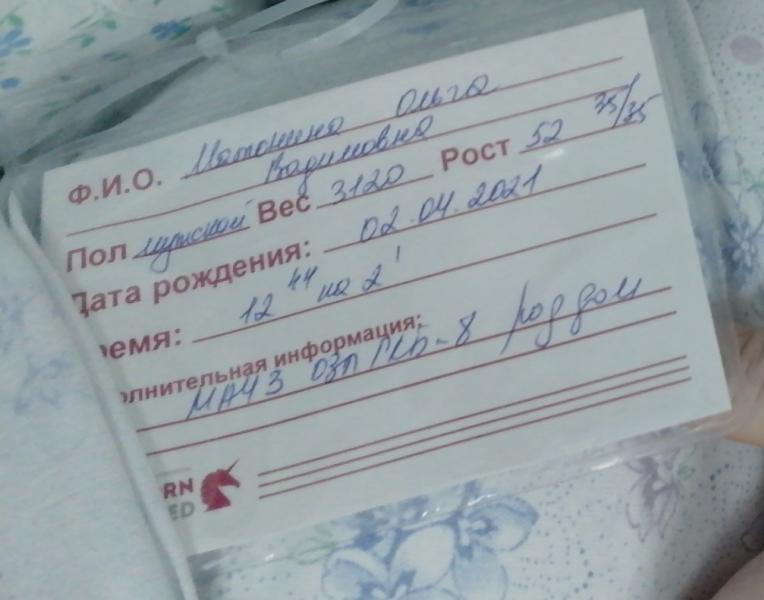 Ф.И.О. Матонина Ольга
Вадимовна
Пол мужской Вес 3120 Рост 52 35/35
Дата рождения: 02.04.2021
ремя: 12 44 на 2'
олнительная информация:
МАУЗ ОЗП ГКБ-8 роддом
RN
ED